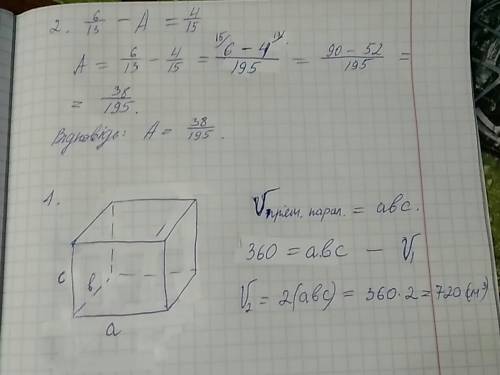 2. 6/13 − A = 4/15
A = 6/13 − 4/15 = (¹⁵⁾6 − 4¹³⁾)/195 = (90 − 52)/195 =
= 38/195.
Відповідь: A = 38/195.
1.
V прям. парал. = abc.
360 = abc − V₁
V₂ = 2(abc) = 360·2 = 720 (м³)
c
b
a